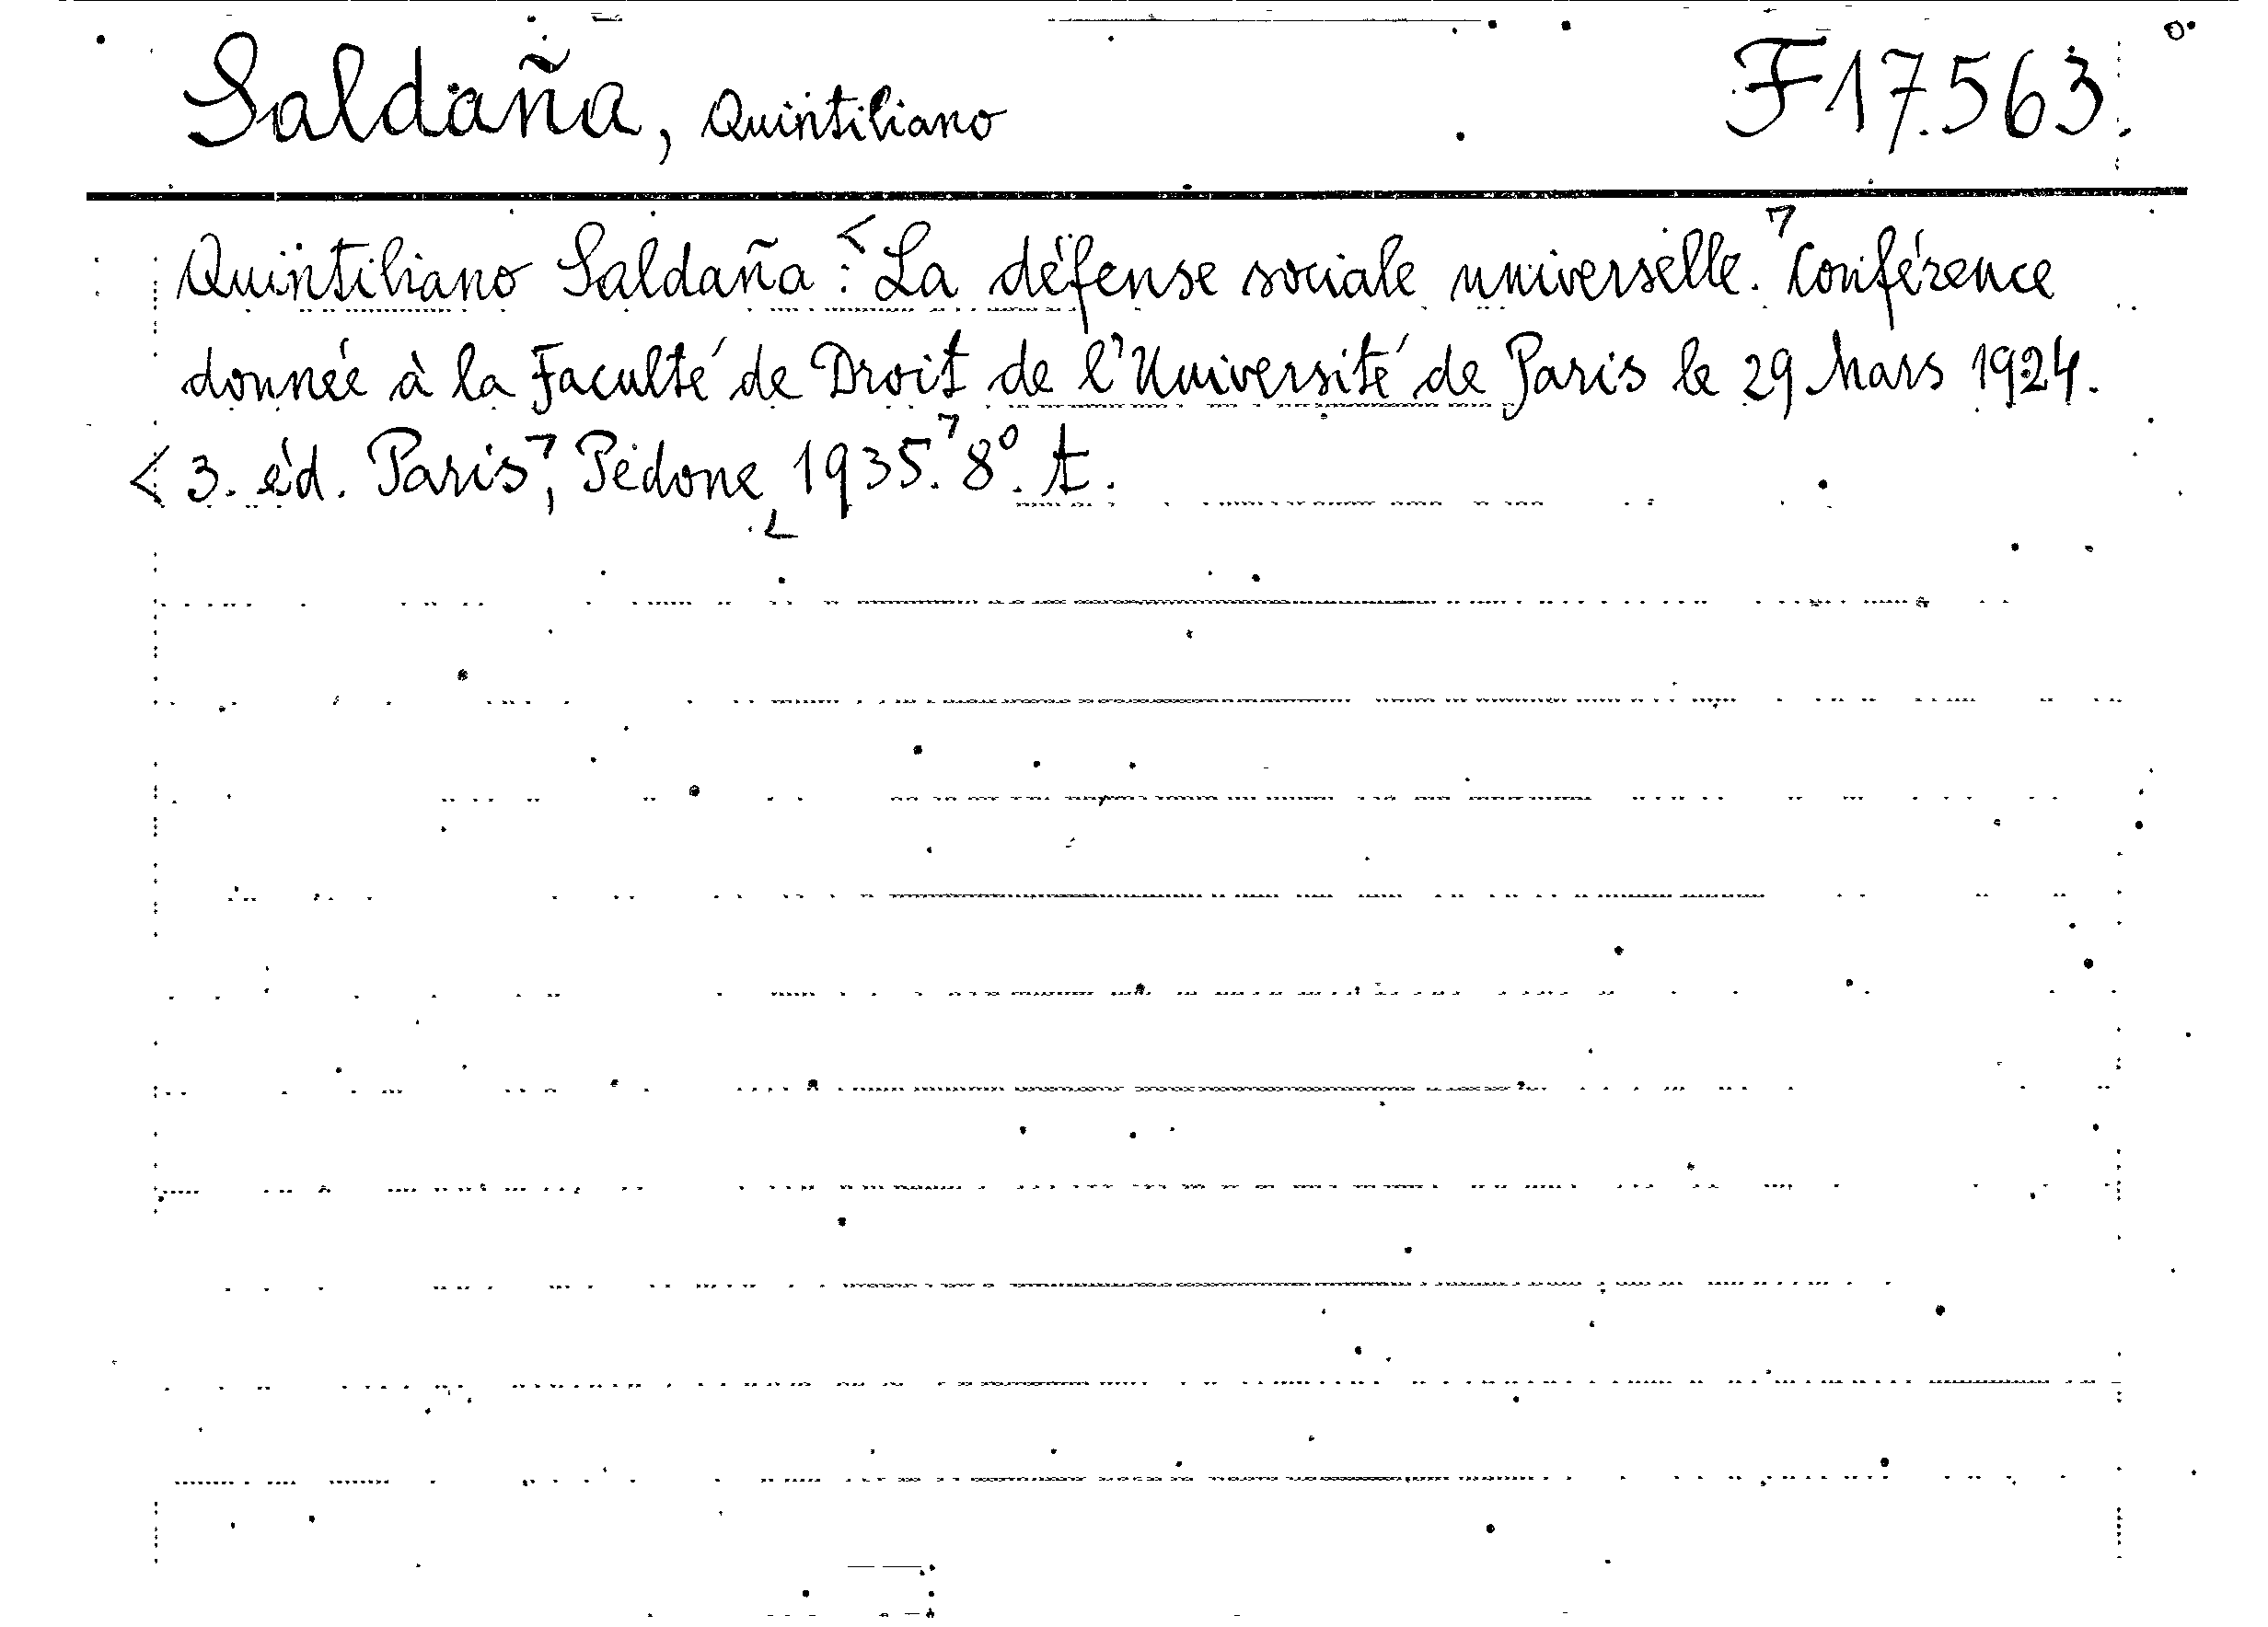 Saldaña, Quintiliano F 17.563.
Quintiliano Saldaña: La défense sociale universelle. Conférence
donnée à la Faculté de Droit de l'Université de Paris le 29 Mars 1924.
3. éd. Paris, Pédone 1935. 8°. t.